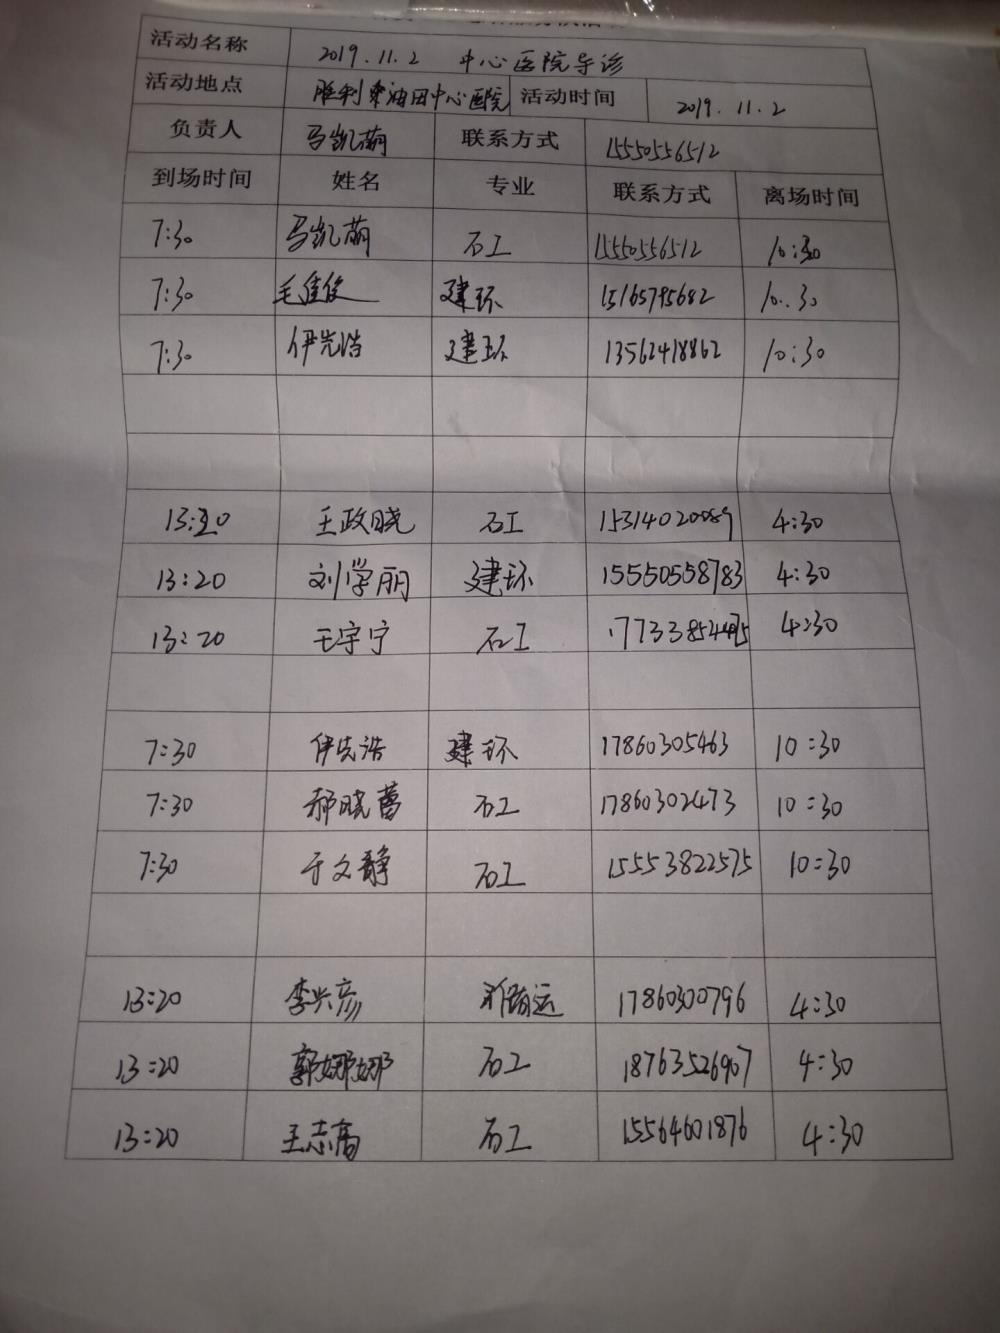 活动名称 2019.11.2 中心医院导诊
活动地点 胜利油田中心医院 活动时间 2019.11.2
负责人 马凯萌 联系方式 15550556512
到场时间 姓名 专业 联系方式 离场时间
7:30 马凯萌 石工 15550556512 10:30
7:30 毛佳俊 建环 15165795682 10:30
7:30 伊先浩 建环 13562418862 10:30
13:20 王政晓 石工 15314020089 4:30
13:20 刘学丽 建环 15550558783 4:30
13:20 王宇宁 石工 4:30
7:30 伊先浩 建环 17860305463 10:30
7:30 郝晓蕾 石工 17860302473 10:30
7:30 于文静 石工 15553822575 10:30
13:20 李兴彦 储运 17860300796 4:30
13:20 郭娜娜 石工 18763526907 4:30
13:20 王志高 石工 15564601876 4:30